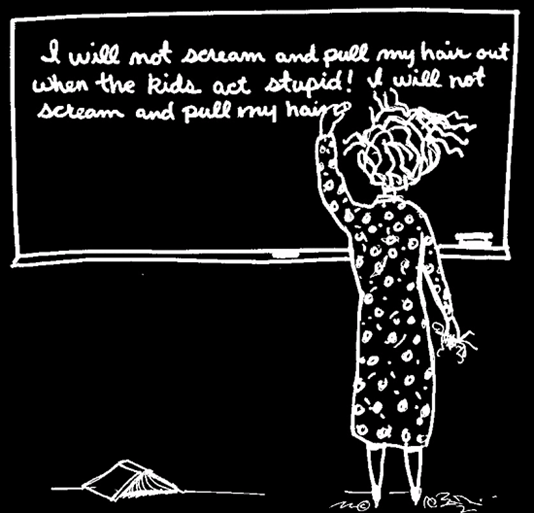 I will not scream and pull my hair out
when the kids act stupid! I will not
scream and pull my hair